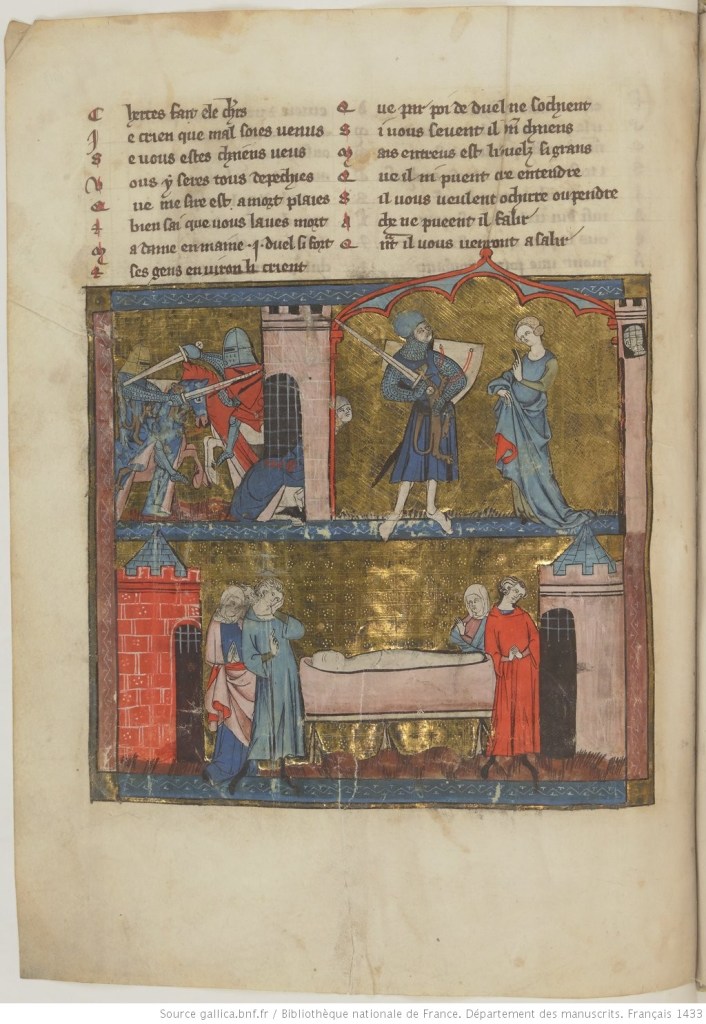 C hertes fait ele chrs
J e crien que mal soies venus
S e vous estes chaiens veus
V ous y seres tous depechies
Q ue me sire est a mort plaies
E bien sai que vous laves mort
M a dame en maine .i. duel si fort
E ses gens environ li crient
Q ue par poi de duel ne sochient
S i vous sevent il chaiens
M ais entreus est li duelz si grans
Q ue il ni puent entendre
S il vous veulent ochirre ou pendre
A che ne pueent il falir
Q nt il vous venront asalir
Source gallica.bnf.fr / Bibliothèque nationale de France. Département des manuscrits. Français 1433